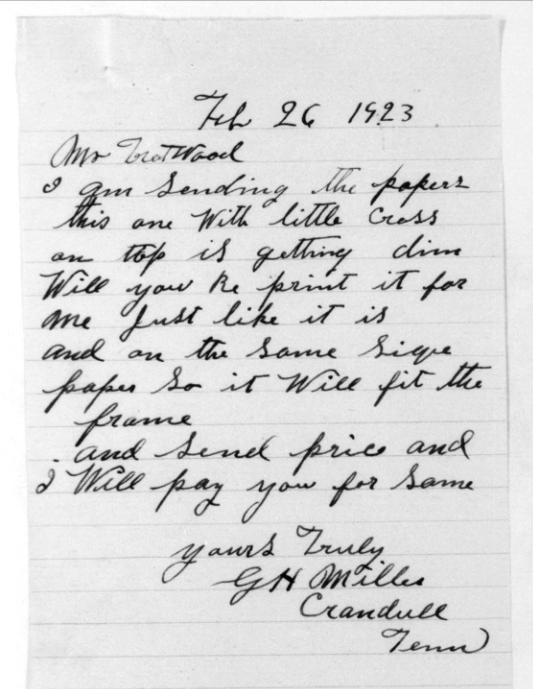 Feb 26 1923
Mr Trotwood
I am Sending the papers
this one With little Cross
on top is getting dim
Will you Re print it for
me Just like it is
and on the Same Sige
paper So it Will fit the
frame
and Send price and
I Will pay you for Same
yours Truly
GH Miller
Crandull
Tenn